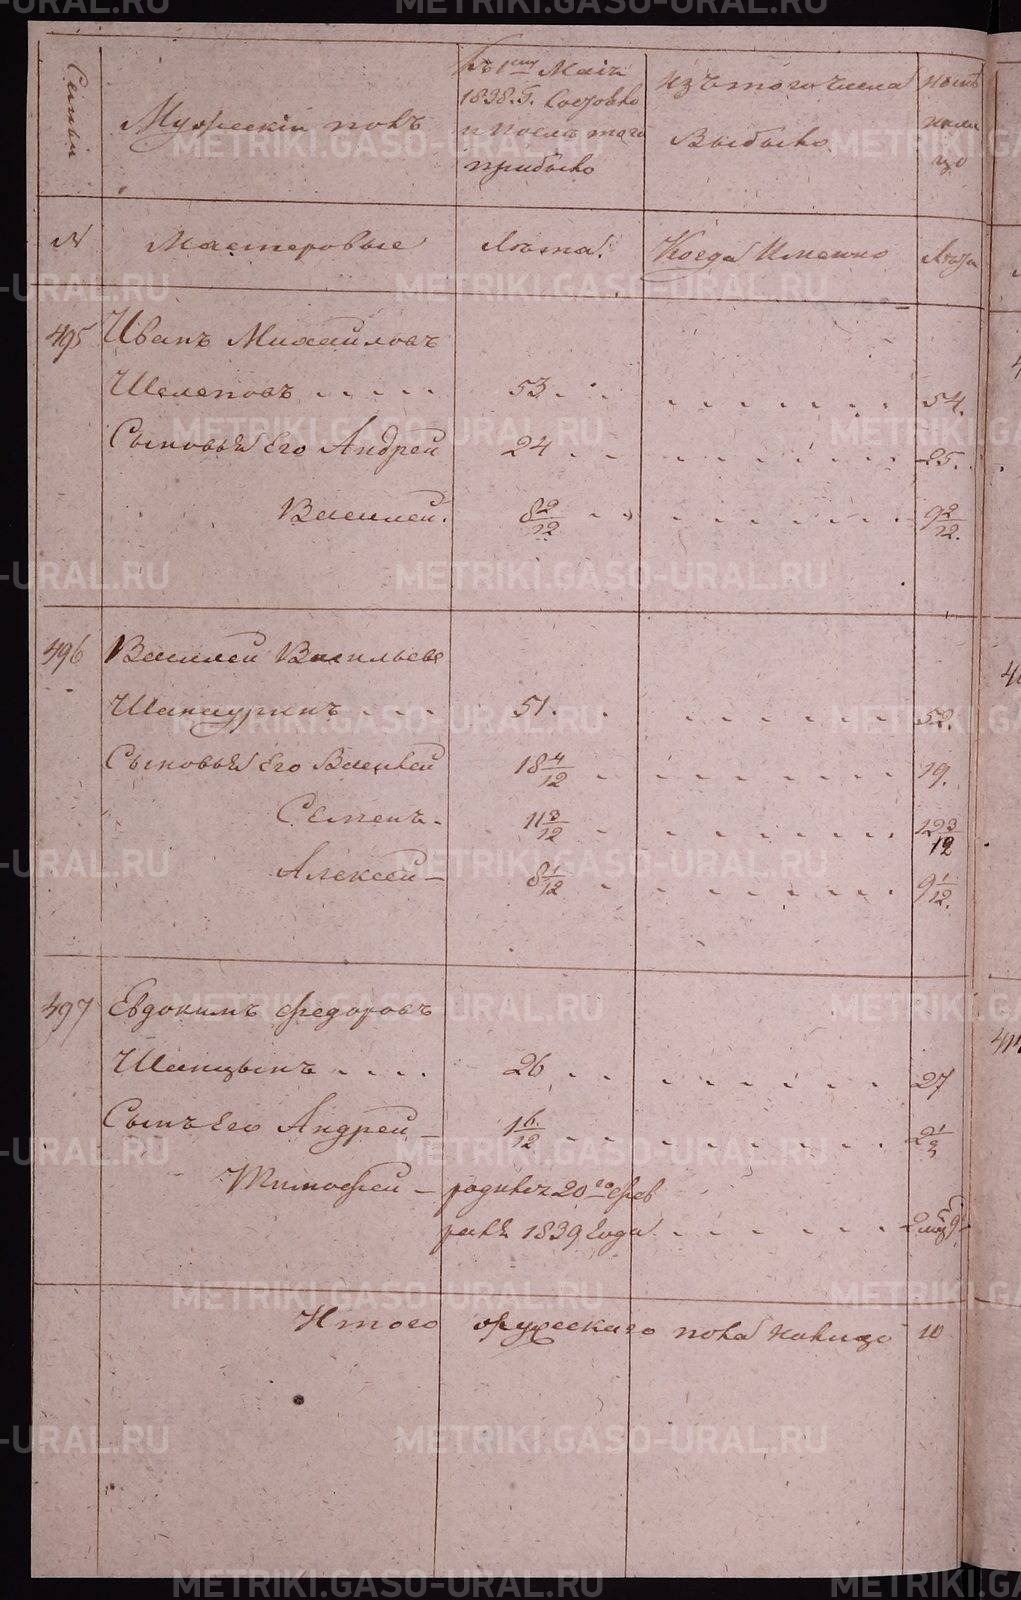 Семьи
Мужескiй полъ
Къ 1му Маiя
1838. Г. Состояло
и послѣ того
прибыло
Изъ того числа
Выбыло
Нынѣ
нали
цо
N
Мастеровые
Лѣта.
Когда Именно
Лѣта
495
Иванъ Михайловъ
Шелеповъ . . . . .
53. . .
. . . . . . . .
54.
Сыновья Его Андрей
24 . .
. . . . . . . .
25.
Василей.
8 2/12 . .
. . . . . . . .
9 2/12.
496
Василей Васильевъ
51. .
. . . . . . . .
52.
Сыновья Его Василей
18 4/12 .
. . . . . . . .
19.
Семенъ.
11 3/12 .
. . . . . . . .
12 3/12
Алексей -
8 1/12 .
. . . . . . . .
9 1/12.
497
Евдокимъ Федоровъ
Шапцынъ . . . .
26 . .
. . . . . . . .
27
Сынъ Его Андрей -
1 6/12 . .
. . . . . . . .
2 1/2
Тимофей - родился 20го Фев
раля 1839 Года . . . . . . . .
Итого мужескаго пола налицо 10
METRIKI.GASO-URAL.RU